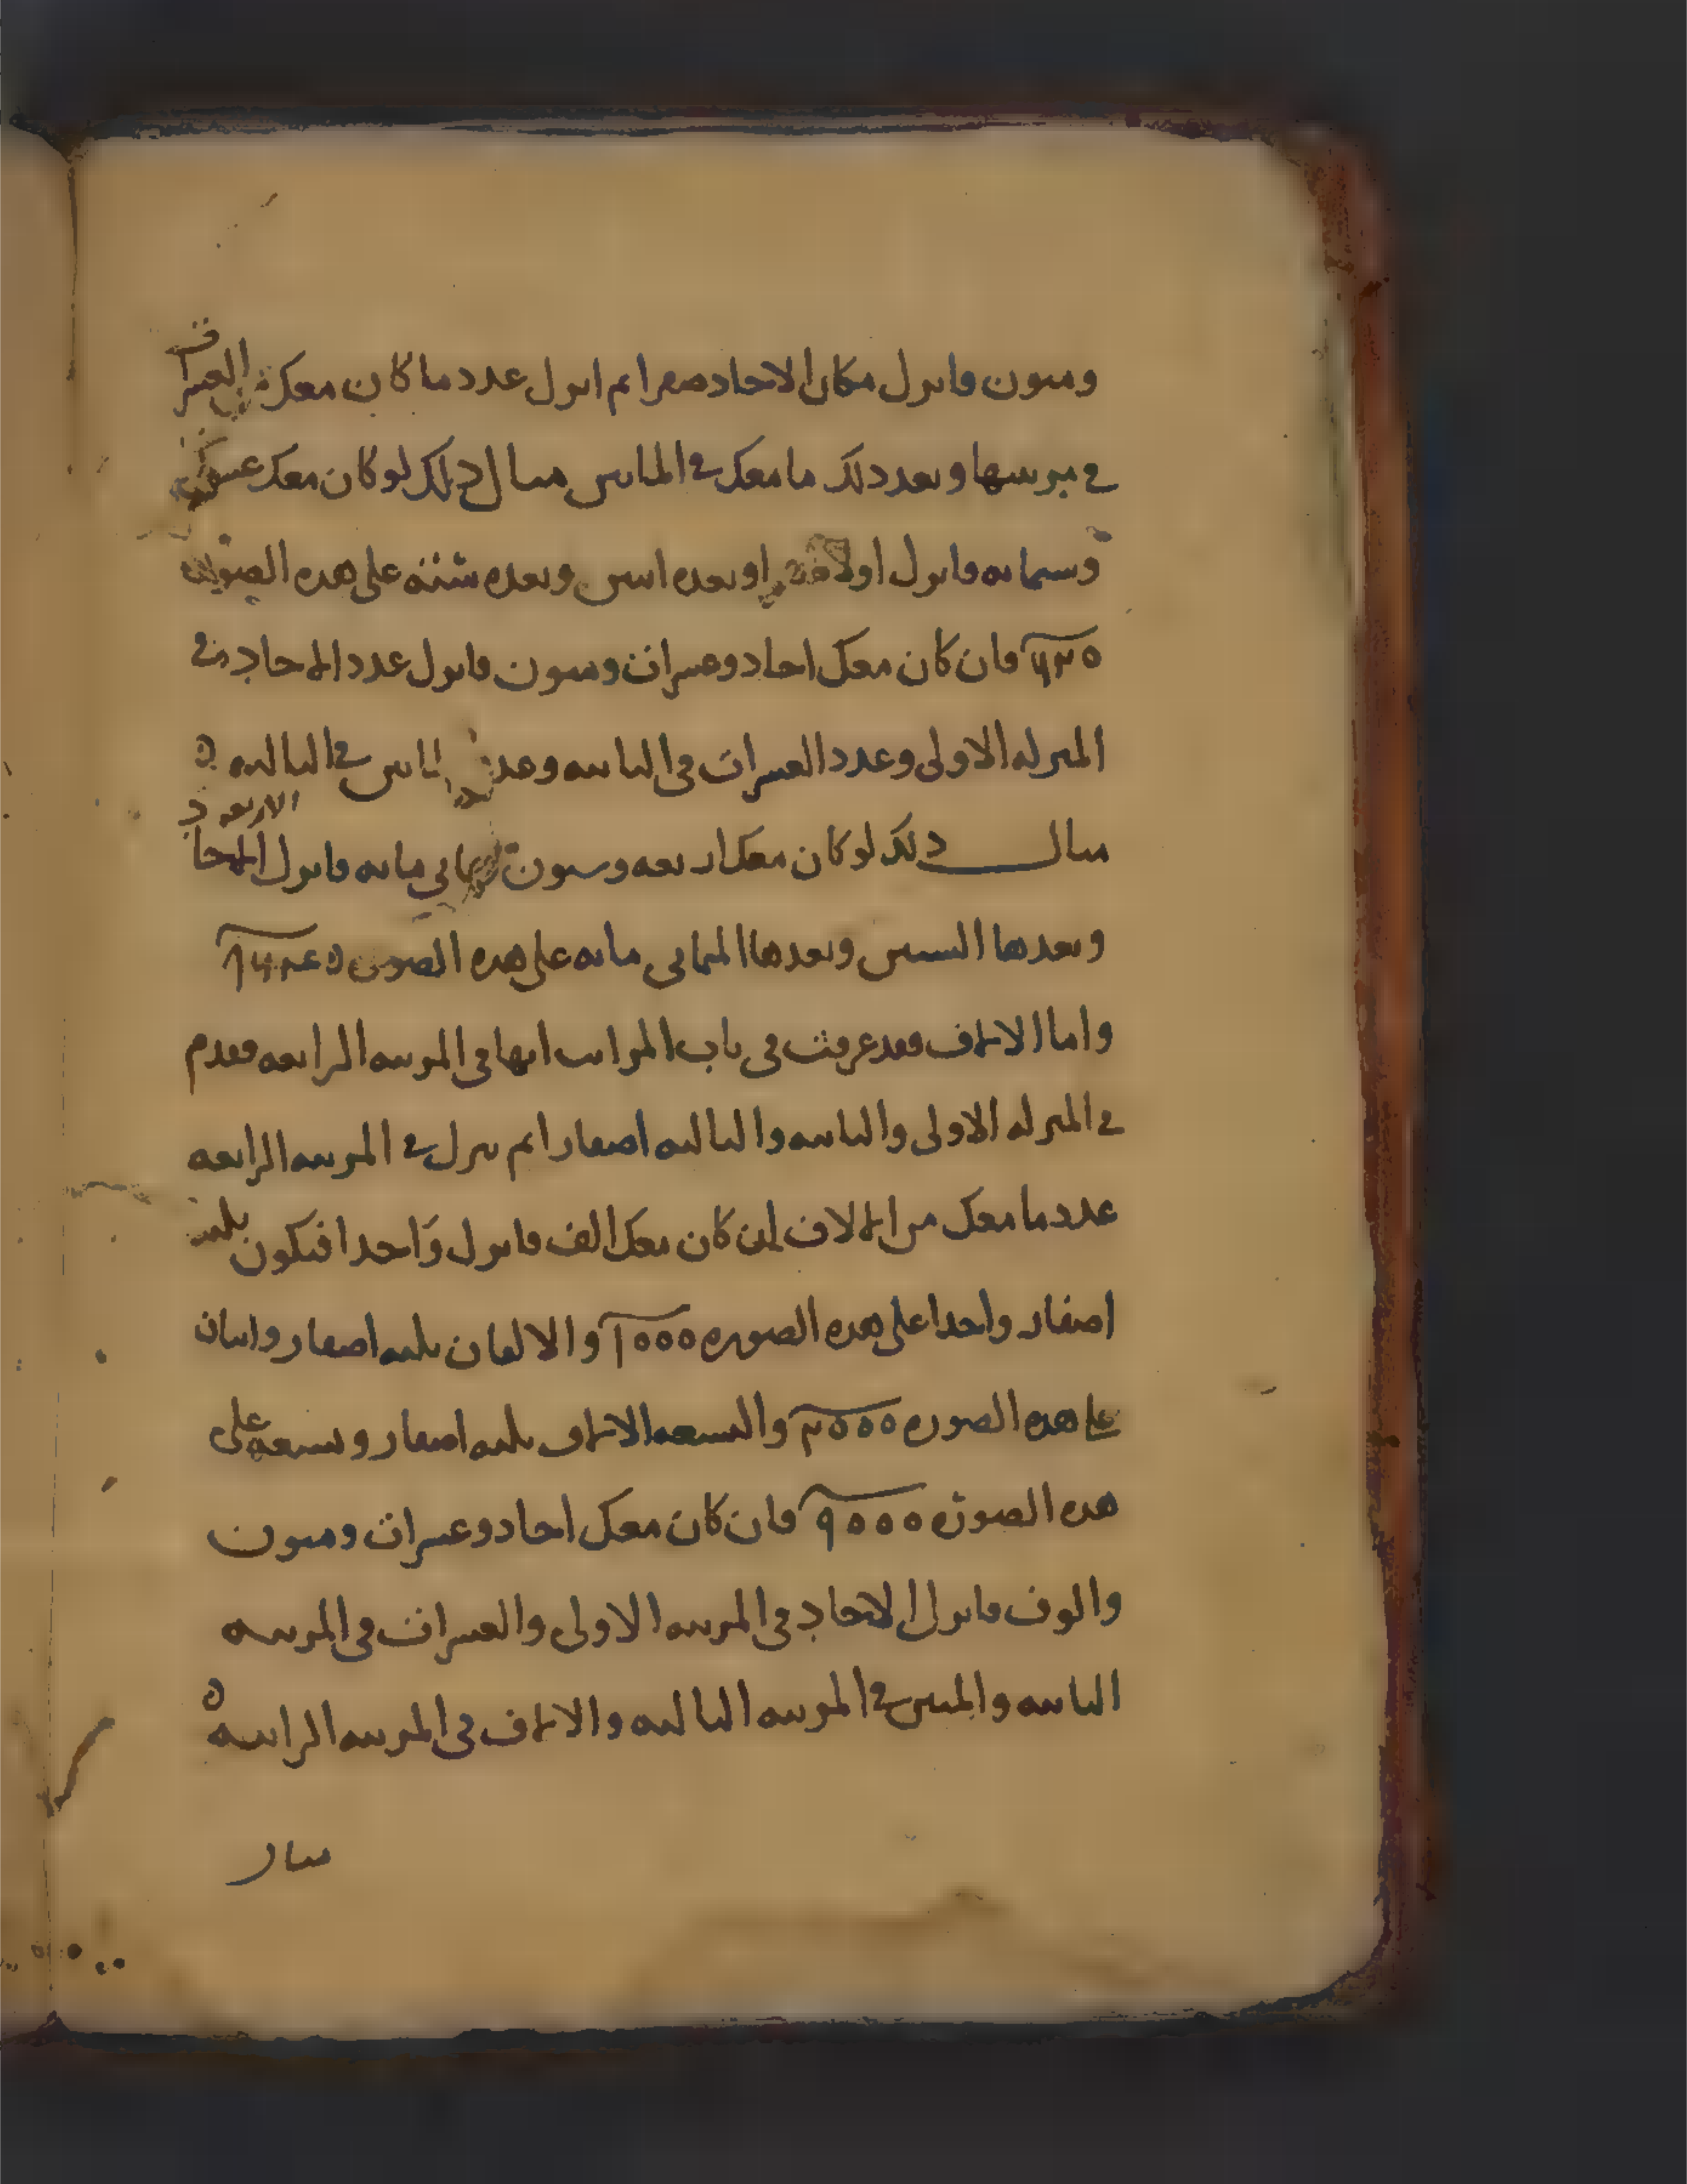 ومئون فانزل مكان الاحاد صفرا ثم انزل عدد ما كان معك من العشرات
في مرتبتها وبعد ذلك ما معك في المايين مثال ذلك لو كان معك عشرون
وستمايه فانزل اولا صفرا وبعده اثنين وبعده ستة على هذه الصورة
٦٢٥ فان كان معك احاد وعشرات ومئون فانزل عدد الاحاد في
المنزله الاولى وعدد العشرات في الثانيه وعدد المايين في الثالثه ه
مثال ذلك لو كان معك اربعه وستون وثماني مايه فانزل الاربعه الاحاد
وبعدها الستين وبعدها الثماني مايه على هذه الصورة
واما الالاف فقد عرفت في باب المراتب انها في المرتبه الرابعه فقدم
في المنزله الاولى والثانيه والثالثه اصفارا ثم تنزل في المرتبه الرابعه
عدد ما معك من الالاف لان كان معك الف فانزل واحدا فيكون ثلثه
اصفار واحدا على هذه الصوره ١٥٥٥ والالفان ثلثه اصفار واثنان
على هذه الصوره ٢٥٥٥ والتسعه الالاف ثلثه اصفار وتسعه على
هذه الصورة ٩٥٥٥ فان كان معك احاد وعشرات ومئون
والوف فانزل الاحاد في المرتبه الاولى والعشرات في المرتبه
الثانيه والمئين في المرتبه الثالثه والالاف في المرتبه الرابعه ه
مثال